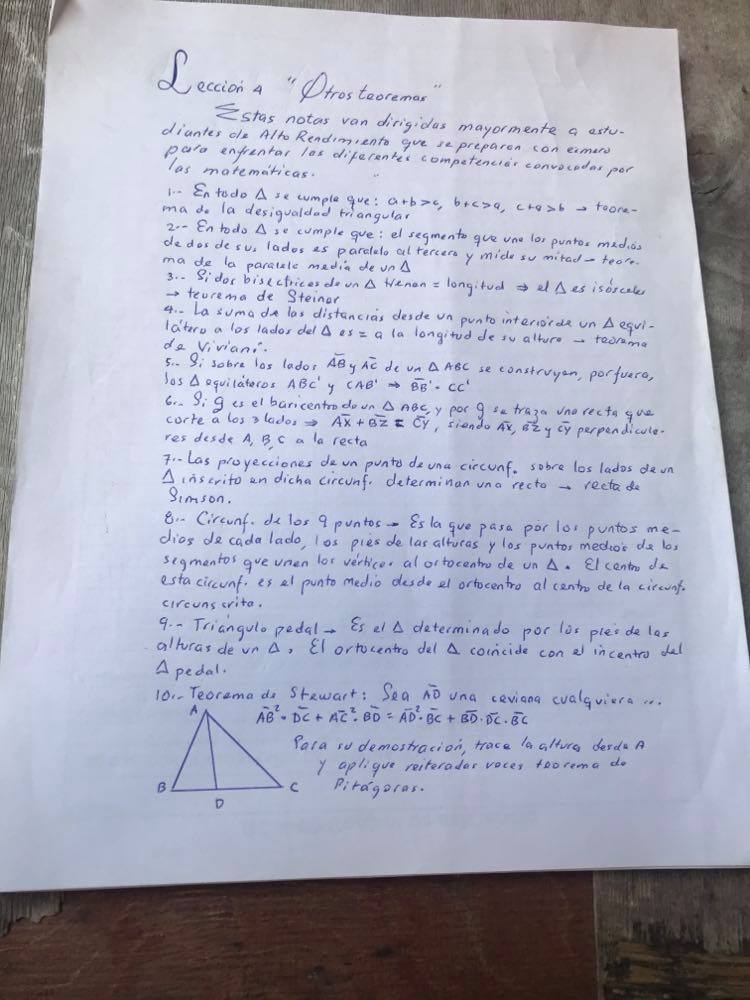 Lección 4 "Otros teoremas"
Estas notas van dirigidas mayormente a estu-
diantes de Alto Rendimiento que se preparan con esmero
para enfrentar las diferentes competencias convocadas por
las matemáticas.
1.- En todo Δ se cumple que: a+b>c, b+c>a, c+a>b → teore-
ma de la desigualdad triangular
2.- En todo Δ se cumple que: el segmento que une los puntos medios
de dos de sus lados es paralelo al tercero y mide su mitad → teore-
ma de la paralela media de un Δ
3.- Si dos bisectrices de un Δ tienen = longitud ⇒ el Δ es isósceles
→ teorema de Steiner
4.- La suma de las distancias desde un punto interior de un Δ equi-
látero a los lados del Δ es = a la longitud de su altura → teorema
de Viviani.
5.- Si sobre los lados A̅B̅ y A̅C̅ de un Δ ABC se construyen, por fuera,
los Δ equiláteros ABC' y CAB' ⇒ B̅B̅' = CC'
6.- Si g es el baricentro de un Δ ABC, y por g se traza una recta que
corte a los 3 lados ⇒ A̅X̅ + B̅Z̅ = C̅Y̅, siendo A̅X̅, B̅Z̅ y C̅Y̅ perpendicula-
res desde A, B, C a la recta
7.- Las proyecciones de un punto de una circunf. sobre los lados de un
Δ inscrito en dicha circunf. determinan una recta → recta de
Simson.
8.- Circunf. de los 9 puntos → Es la que pasa por los puntos me-
dios de cada lado, los pies de las alturas y los puntos medios de los
segmentos que unen los vértices al ortocentro de un Δ. El centro de
esta circunf. es el punto medio desde el ortocentro al centro de la circunf.
circunscrita.
9.- Triángulo pedal → Es el Δ determinado por los pies de las
alturas de un Δ, El ortocentro del Δ coincide con el incentro del
Δ pedal.
10.- Teorema de Stewart: Sea A̅D̅ una ceviana cualquiera ...
A̅B̅²·D̅C̅ + A̅C̅²·B̅D̅ = A̅D̅²·B̅C̅ + B̅D̅·D̅C̅·B̅C̅
A
Para su demostración, trace la altura desde A
y aplique reiteradas veces teorema de
B
C
Pitágoras.
D